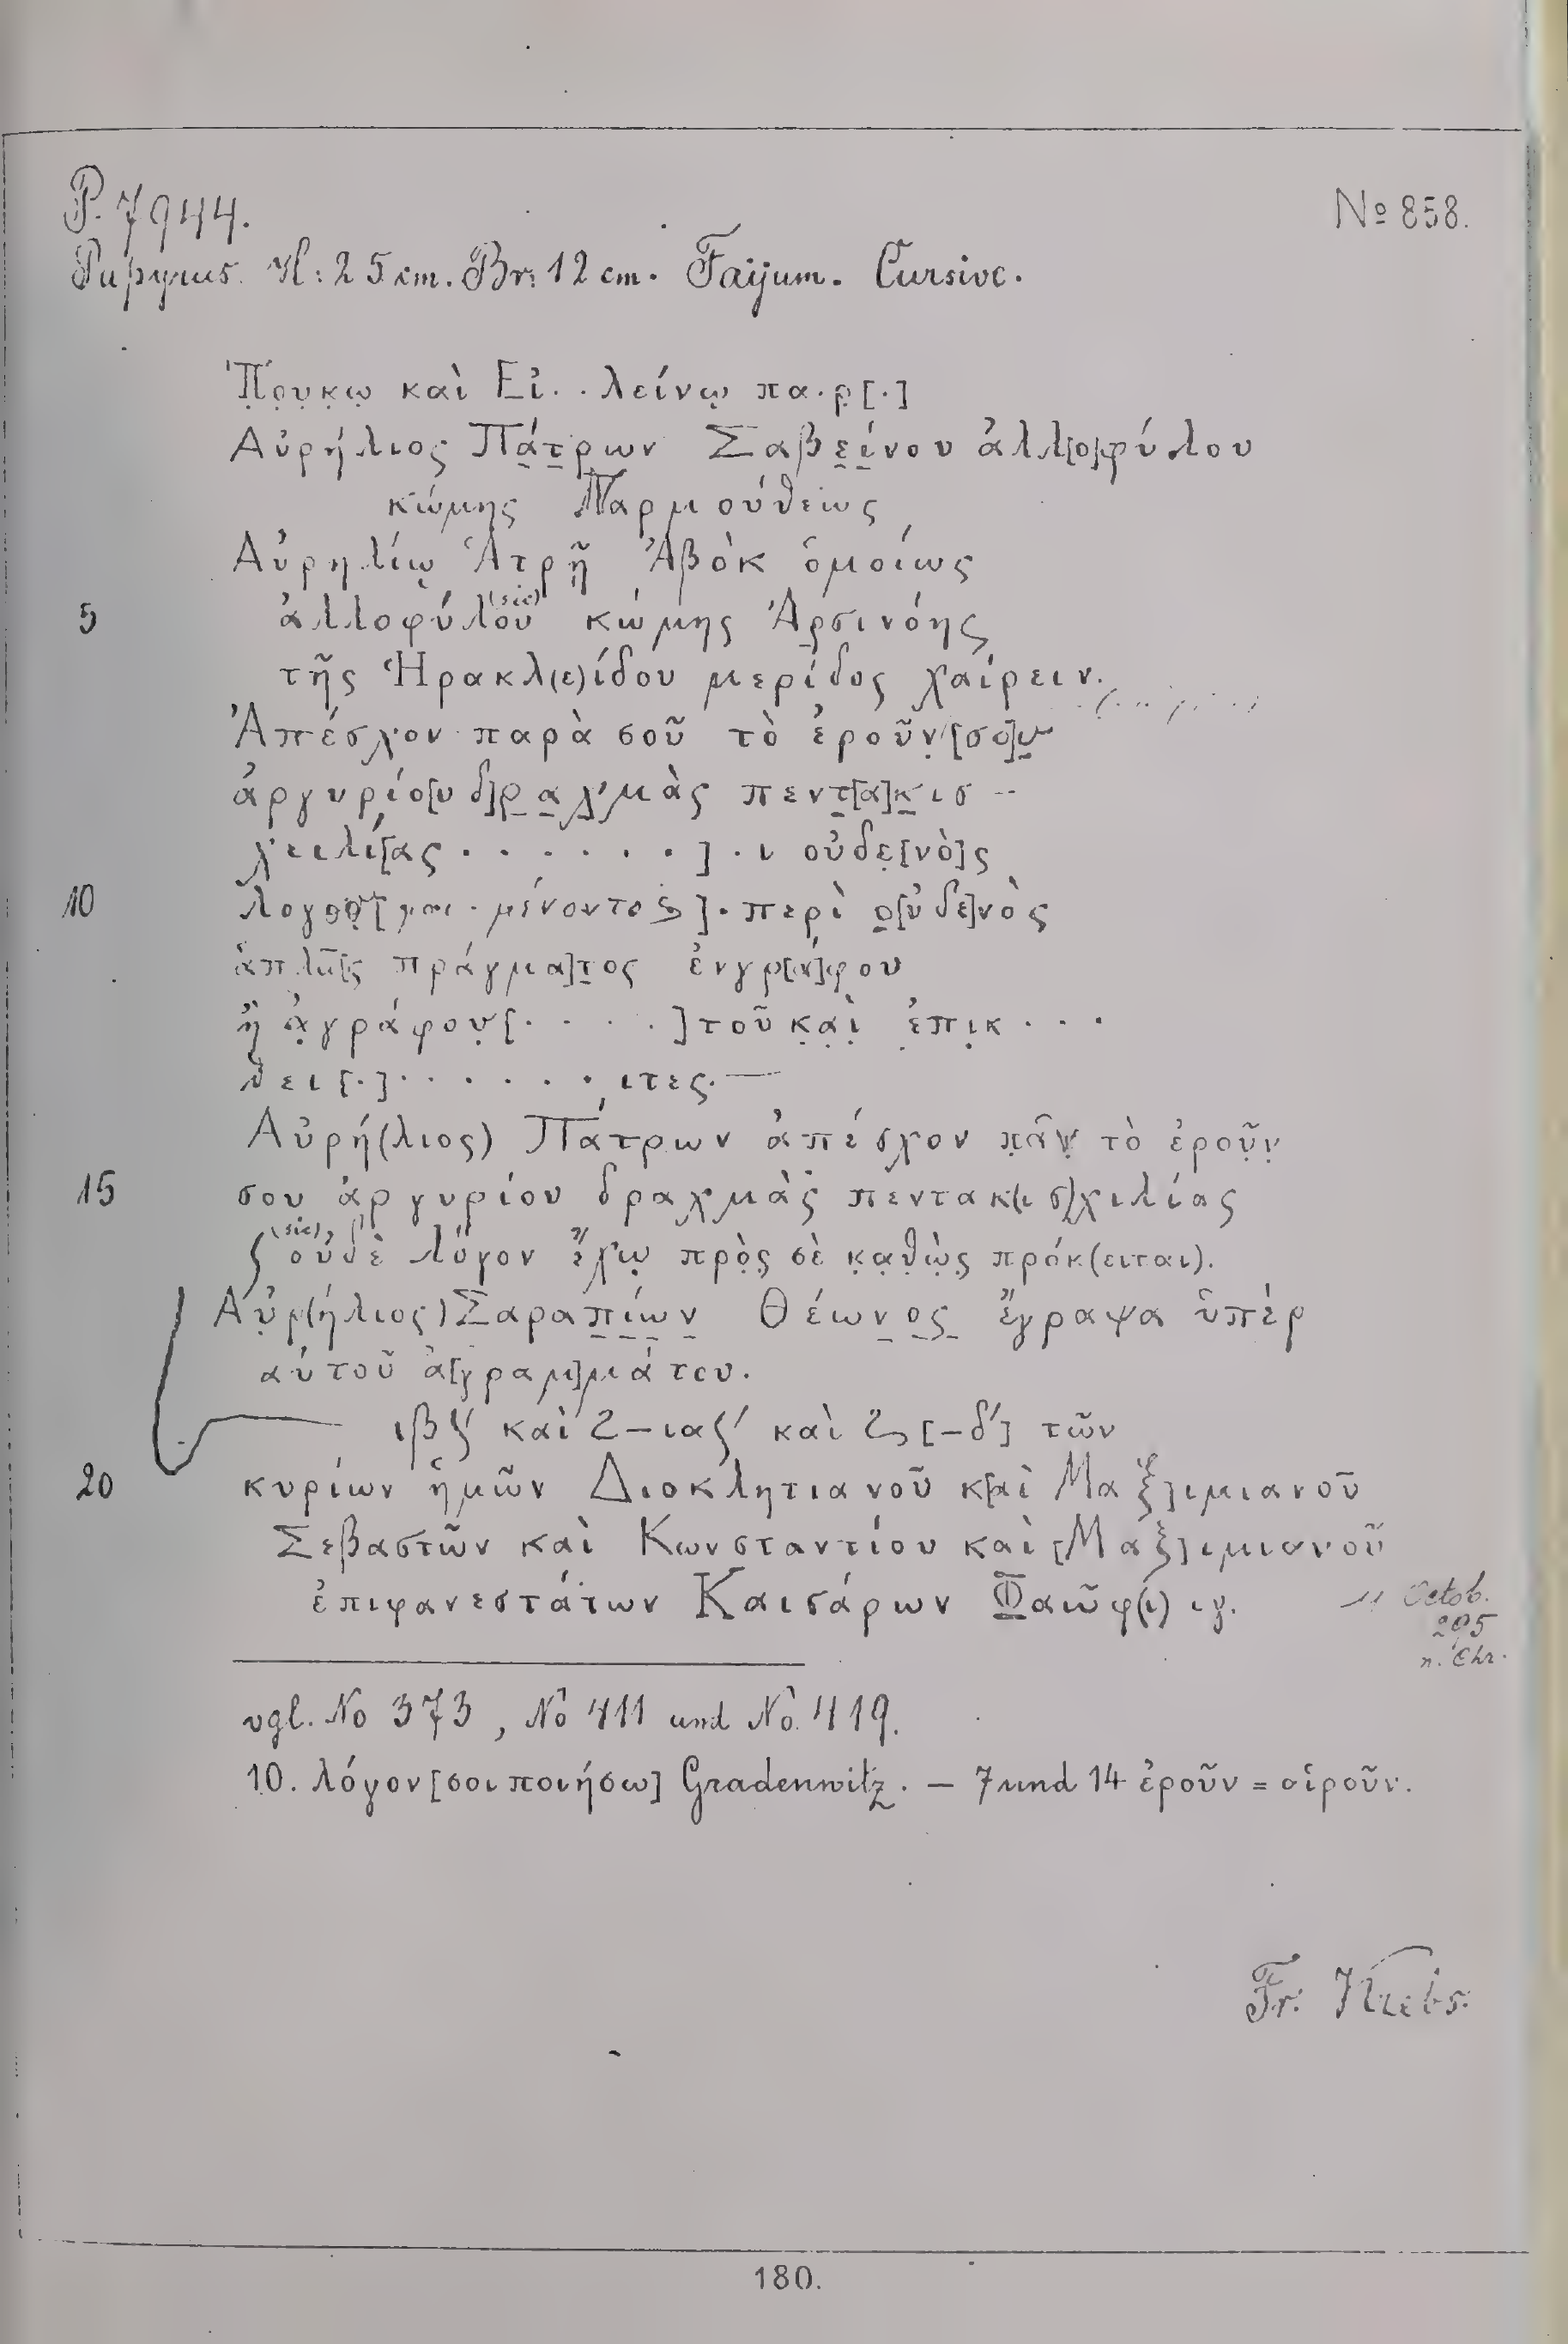 P. 7944.
No 858.
Papyrus. H: 25 cm. Br: 12 cm. Faijum. Cursive.
Π̣ρ̣υ̣κ̣ῳ καὶ Εἰ. . λείνῳ πα.ρ̣[.]
Αὐρήλιος Πά̣τ̣ρων Σαβε̣ί̣νου ἀλλ[ο]φύλου
κώμης Παρμούθεως
Αὐρηλίῳ Ἁτρῇ Ἀβὸκ ὁμοίως
5 ἀλλοφύλου (sic) κώμης Ἀρ̣σινόης
τῆς Ἡρακλ(ε)ίδου μερίδος χαίρειν.
Ἀπέσχον παρὰ σοῦ τὸ ἐροῦν̣[σο]υ̣
ἀργυρίο[υ δ]ρ̣α̣χ̣μὰς πεντ̣[α]κ̣ισ-
χειλί[ας . . . . . . ] . ι οὐδε̣[νὸ]ς
10 λογο̣ο̣[ . μένοντος]. περὶ ο̣[ὐδε]νὸς
ἁπλῶ[ς πράγμα]τ̣ος ἐνγρ[ά]φου
ἢ ἀ̣γράφου̣[. . . .]τοῦ κ̣α̣ὶ̣ ἐ̣πι̣κ . . .
δει[.]. . . . . . ιτες.—
Αὐρή(λιος) Πάτρων ἀπέσχον π̣ᾶν̣ τὸ ἐροῦ̣ν̣
15 σου ἀργυρίου δραχμὰς πεντακ(ισ)χιλίας
(sic) οὐδὲ λόγον ἔχω̣ πρὸ̣ς̣ σὲ κ̣α̣θ̣ὼ̣ς̣ πρόκ(ειται).
Αὐ̣ρ(ήλιος) Σαραπ̣ί̣ω̣ν̣ Θέων̣ο̣ς̣ ἔγραψα ὑπὲρ
αὐτοῦ ἀ[γραμ]μάτου.
ιβϛʹ καὶ Ϩ–ιαϛʹ καὶ Ϩ [–δʹ] τῶν
20 κυρίων ἡμῶν Διοκλητιανοῦ κ[αὶ Μαξ]ιμιανοῦ
Σεβαστῶν καὶ Κωνσταντίου καὶ [Μαξ]ιμιανοῦ
ἐπιφανεστάτων Καισάρων Φ̣αῶφ(ι) ιγ.
11 Octob.
295
n. Chr.
vgl. No 373, No 411 und No 419.
10. λόγον [σοι ποιήσω] Gradenwitz. — 7 und 14 ἐροῦν = αἱροῦν.
Fr. Krebs.
180.